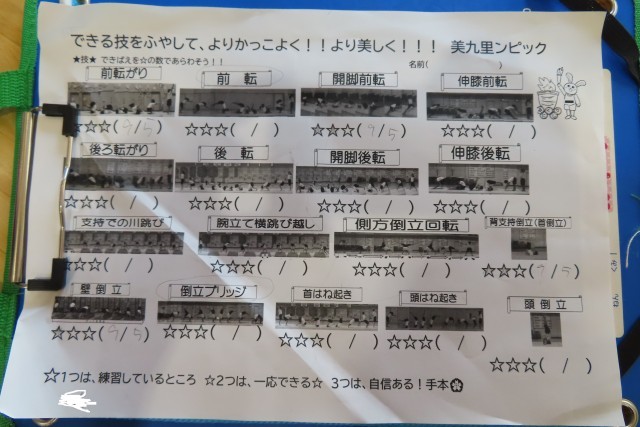 できる技をふやして、よりかっこよく！！より美しく！！！ 美九里ンピック
★技★ できばえを☆の数であらわそう！！ 名前( )
前転がり 前転 開脚前転 伸膝前転
☆☆☆(9/5) ☆☆☆( / ) ☆☆☆(9/5) ☆☆☆( / )
後ろ転がり 後転 開脚後転 伸膝後転
☆☆☆( / ) ☆☆☆( / ) ☆☆☆( / ) ☆☆☆( / )
支持での川跳び 腕立て横跳び越し 側方倒立回転 背支持倒立(首倒立)
☆☆☆( / ) ☆☆☆( / ) ☆☆☆( / ) ☆☆☆( / )
壁倒立 倒立ブリッジ 首はね起き 頭はね起き 頭倒立
☆☆☆(9/5) ☆☆☆( / ) ☆☆☆( / ) ☆☆☆( / ) ☆☆☆( / )
☆1つは、練習しているところ ☆2つは、一応できる☆ 3つは、自信ある！手本